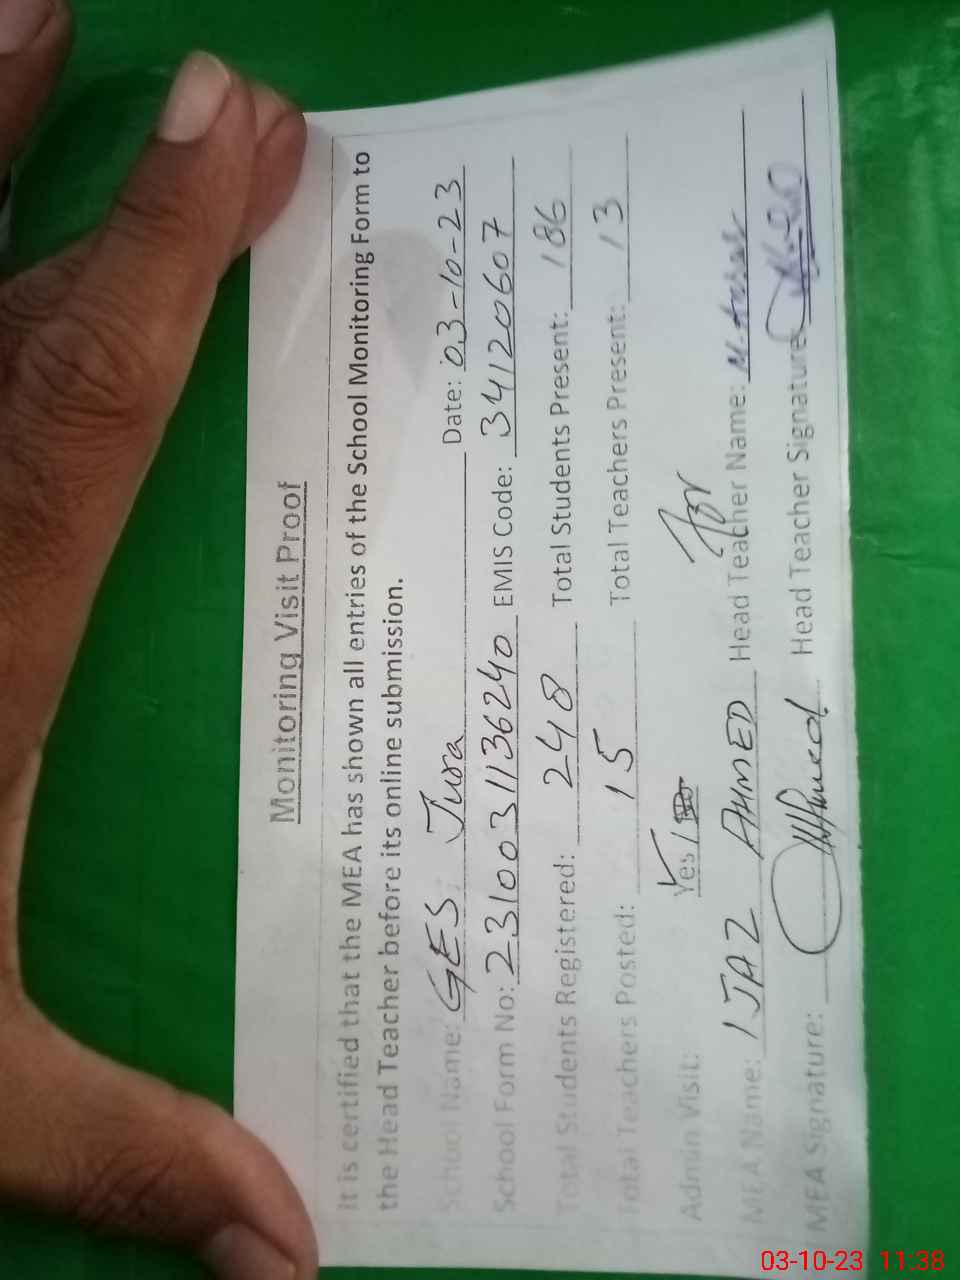 Monitoring Visit Proof
It is certified that the MEA has shown all entries of the School Monitoring Form to
the Head Teacher before its online submission.
School Name: GES Jura Date: 03-10-23
School Form No: 2310031136240 EMIS Code: 34120607
Total Students Registered: 248 Total Students Present: 186
Total Teachers Posted: 15 Total Teachers Present: 13
Admin Visit: Yes / For
MEA Name: IJAZ AHMED Head Teacher Name: M.
MEA Signature: Head Teacher Signature
03-10-23 11:38